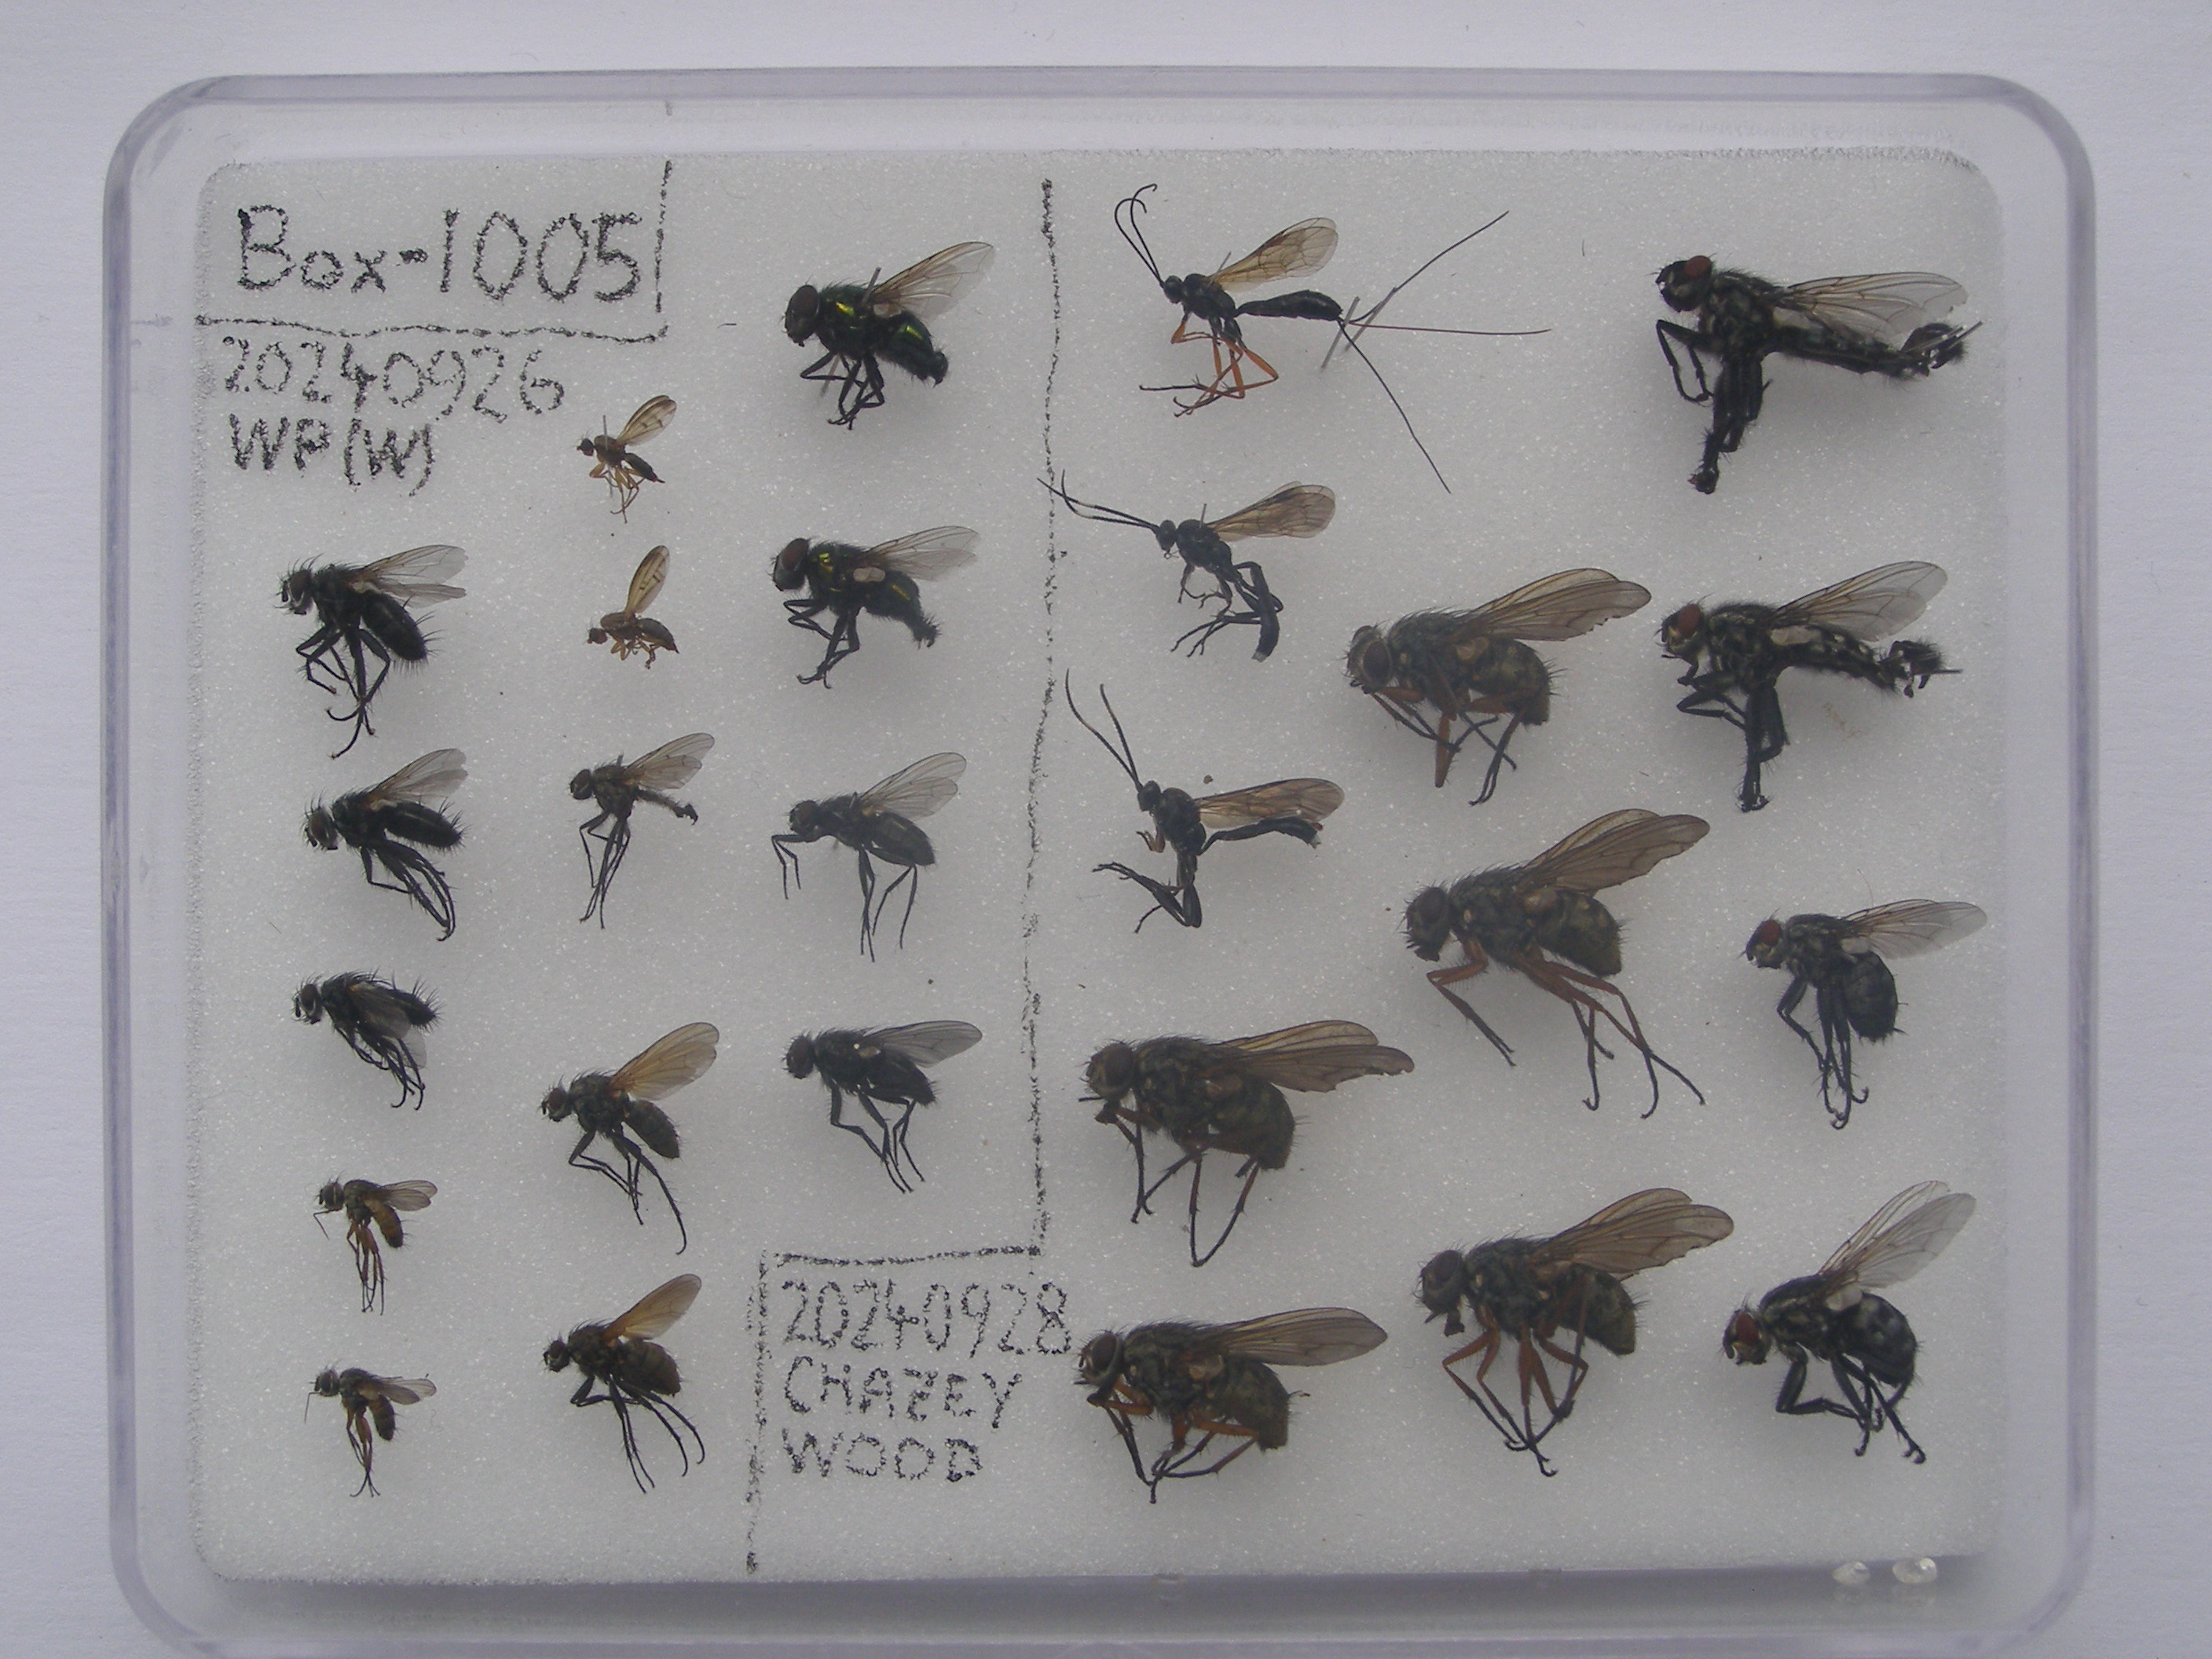 Box-1005
20240926
WP(W)
20240928
CHAZEY
WOOD